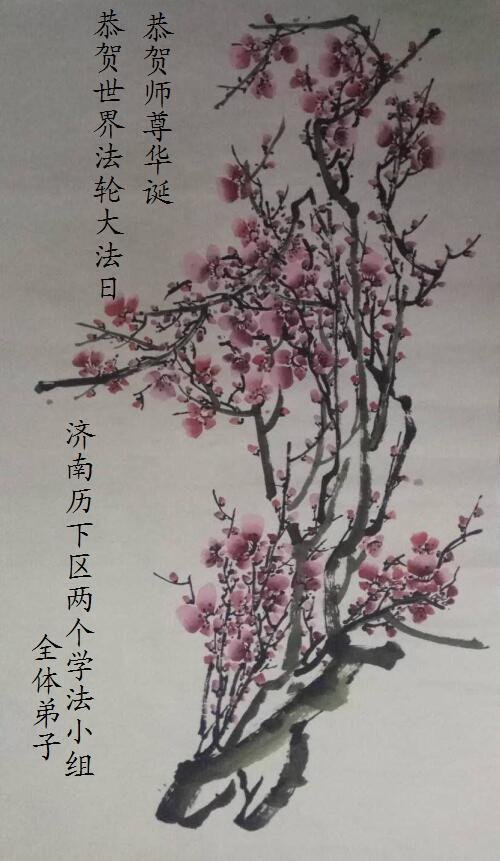 恭贺师尊华诞
恭贺世界法轮大法日
济南历下区两个学法小组
全体弟子